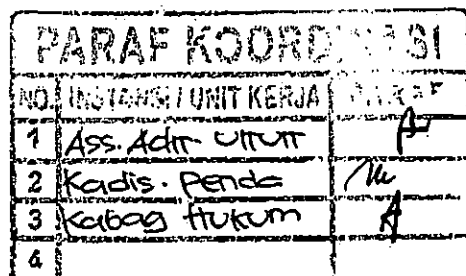 PARAF KOORDINASI
NO. INSTANSI / UNIT KERJA PARAF
1 Ass. Adm Umum
2 Kadis. Penda
3 Kabag Hukum
4